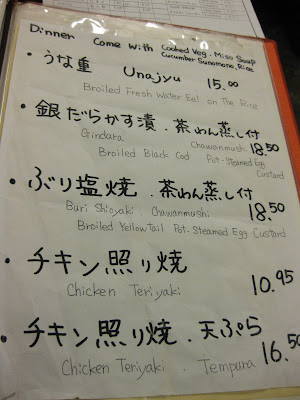 Dinner Come With Cooked Veg. Miso Soup
Cucumber Sunomono, Rice
• うな重 Unajyu 15.00
Broiled Fresh Water Eel on The Rice
• 銀だらかす漬．茶わん蒸し付
Gindara Chawanmushi 18.50
Broiled Black Cod Pot-Steamed Egg
Custard
• ぶり塩焼．茶わん蒸し付
Buri Shioyaki Chawanmushi 18.50
Broiled Yellowtail Pot-Steamed Egg Custard
• チキン照り焼
Chicken Teriyaki 10.95
• チキン照り焼．天ぷら
Chicken Teriyaki . Tempura 16.50